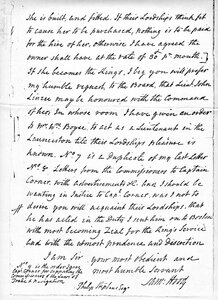 she is built, and fitted. If their Lordships think fit
to cause her to be purchased, nothing is to be paid
for the hire of her, otherwise I have agreed the
owner shall have at the rate of 30£ pr month. If
If she becomes the Kings, I beg you will prefer
my humble request to the Board, that Lieut John
Linzee may be honoured with the Command
of her; In whose room I have given an order
to Mr Wm Boyce, to act as a Lieutenant in the
Launceston till their Lordships pleasure is
known. No 7 is a Duplicate of my last Letter
No 8 Letters from the Commissioners to Captain
Corner, with advertisements &c. and I should be
wanting in Justice to Capt Corner, was I not to
desire you will acquaint their Lordships, that
he has acted in the Duty I sent him on to Boston
with most becoming Zeal for the King's Service
and with the utmost prudence, and Discretion
I am Sir your most obedient and
most humble Servant
Saml Hood
No 9 is the order given
Capt Corner for supporting the
Commissioners of the Laws of
Trade & Navigation
Philip Stephens Esqr